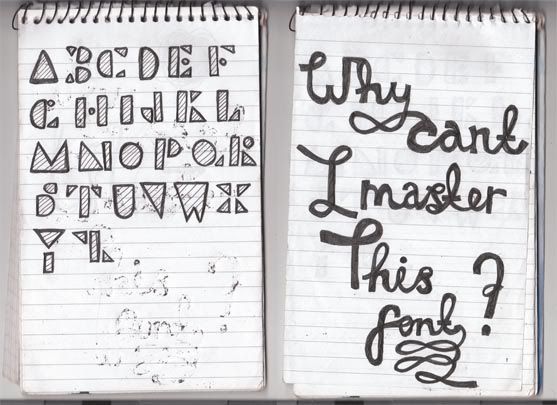 A B C D E F
G H I J K L
M N O P Q R
S T U V W X
Y Z
Why
cant
I master
This
font?